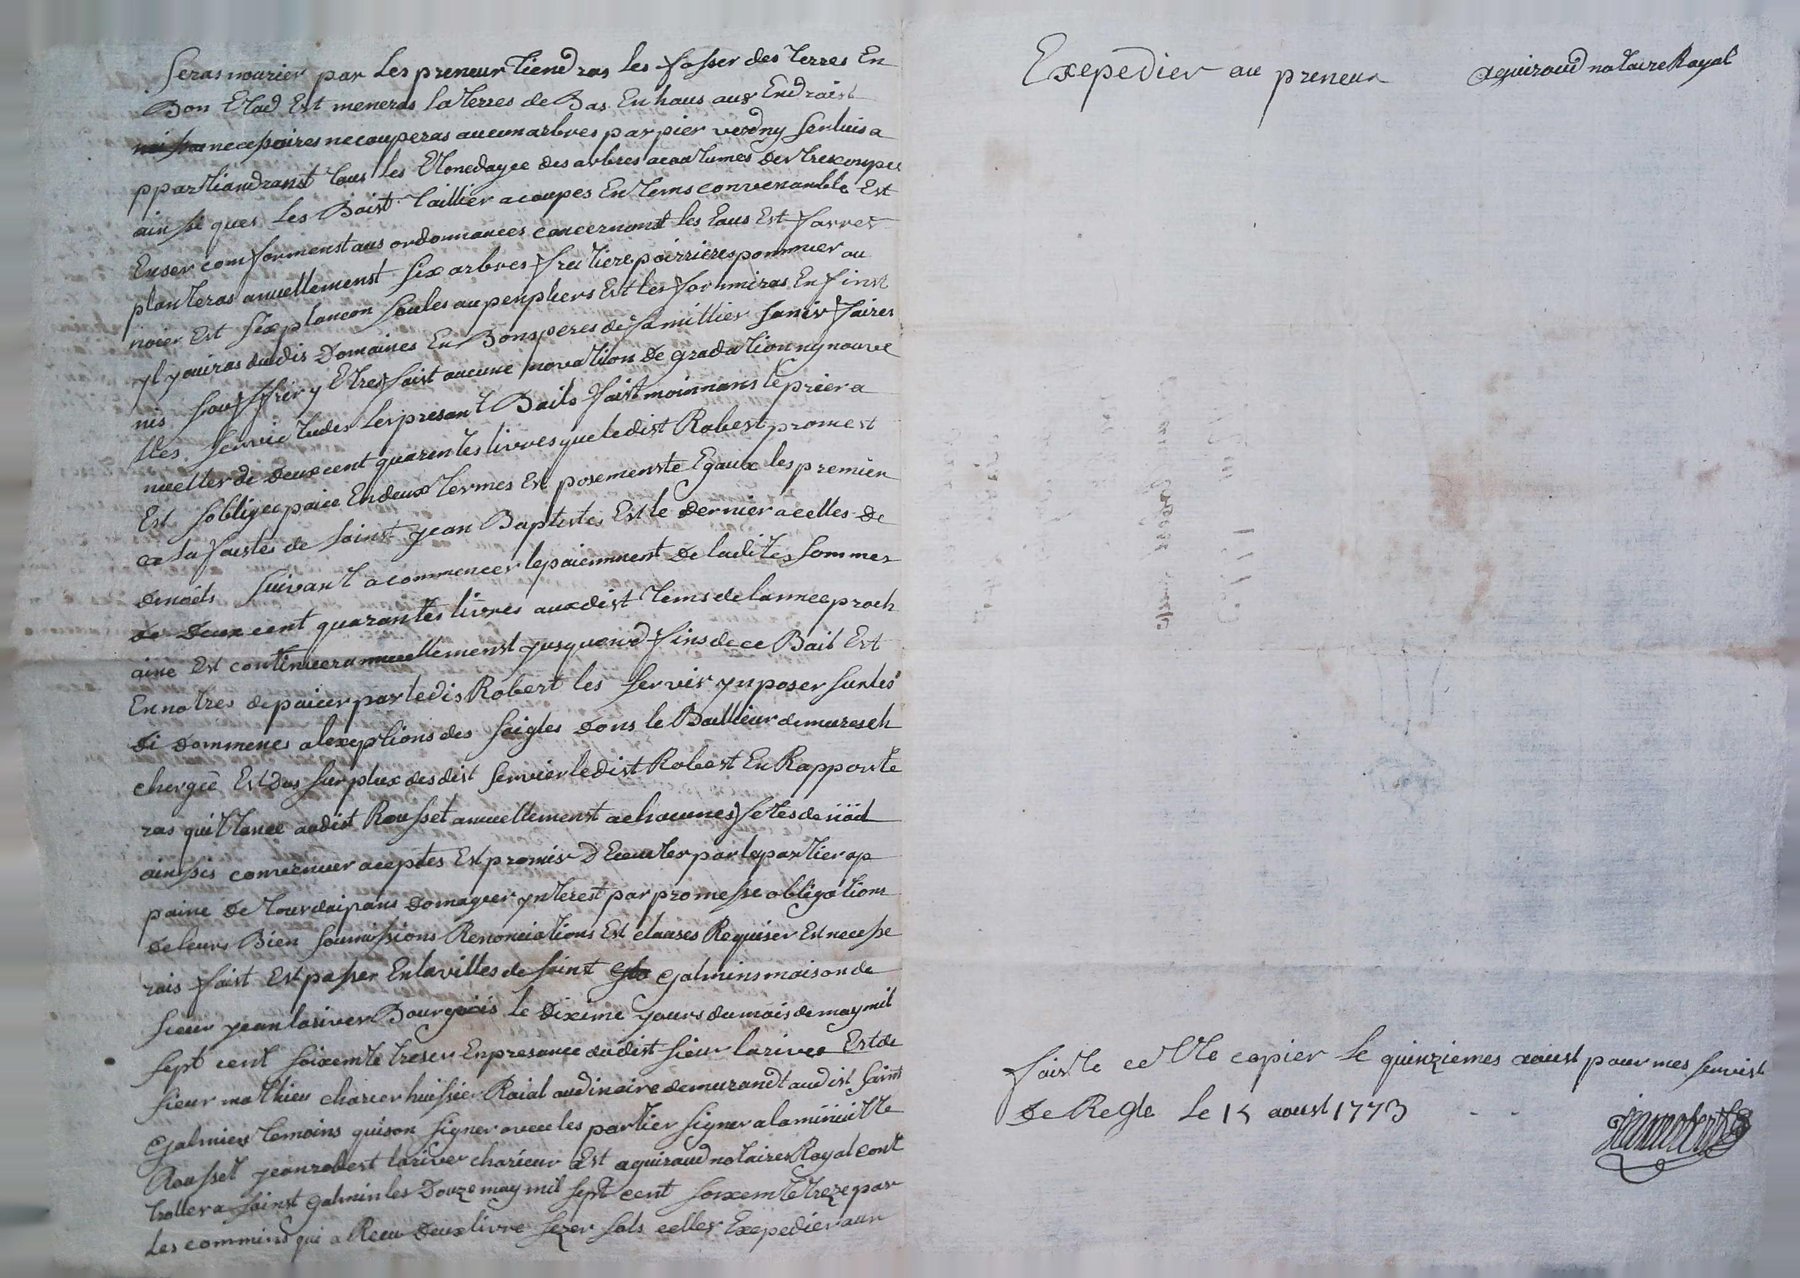 Seras nourier par les preneur tiendras les fosser des terres En
Bon Etad Est meneras la terres de Bas En haus aux Endroist
necessaires ne couperas aucun arbres par pier verd ny sen luis a
ppartiandranst tous les Etonedagee des arbres acoutumes dertre coupee
ainssé ques les Boist taillier a coupes En tems convenanble Est
En ser comformenst aus ordonnances concernant les Eaus Est forres
planteras anuellemenst six arbres fruitiere poirrieres pommier ou
noier Est six plancon soules au penpliers Est les fourniras En finst
yl youiras dudis Domaines En Bons peres de familier sanis faires
nis souffrir y Etres faist aucune inovation De gradation ny nouve
lles servietudes les presant Bails faist moinnans le prier a
nuelles di Deux cent quarentes livres que ledist Robest promest
Est sobligee paiee En deux termes Est posemenste Egaux les premier
a la faistes de sainst jean Baptistes Est le dernier a celles de
denoëls suivant a commencer le paiemment De ladites sommes
de Deux cent quarantes livres aux dist tems de lannee proch
aine Est continuer annuellemenst jusquand fins de ce Bail Est
En notres de paier par ledis Robert les servis ynposer sur les
di dommenes a lexeptions des seigles Dons le Bailleur demures ch
chergée Est des surplux des dist servier le dist Robest En Rapporte
ras quittance audist Rousset anuellemenst a chacunes fetes de nöel
ainssis convenuer aceptes Est promis D Eceuter par le partier ap
paine De tour daipans domager ynterest par promesse obligations
de leurs Bien soumissions Renonciations Est clauses Requiser Est necesse
rais faist Est passer En la villes de saint galmins maison de
sieur jean lariver Bourgois le Dixieme yours du mois de may mil
sept cent soixente treser En presance dudist sieur larives Est de
sieur mathieu charier huissier Roial audinaire demurandt audist saint
galmier temoins quison signer avec les partier signer a la minutte
Rousset jean robest lariver charieur Est aguiraud notaires Royal cont
troller a sainst galmin les Douze may mil sept cent soixente treze par
les commins qui a Receu Deux livre sezer sols celler Exepedier aux
Exepedier au preneur aguiraud notaire Royal
faiste cette copier le quinziemes aoust pour mes servist
De Regle le 15 aoust 1773 - -
jean robert